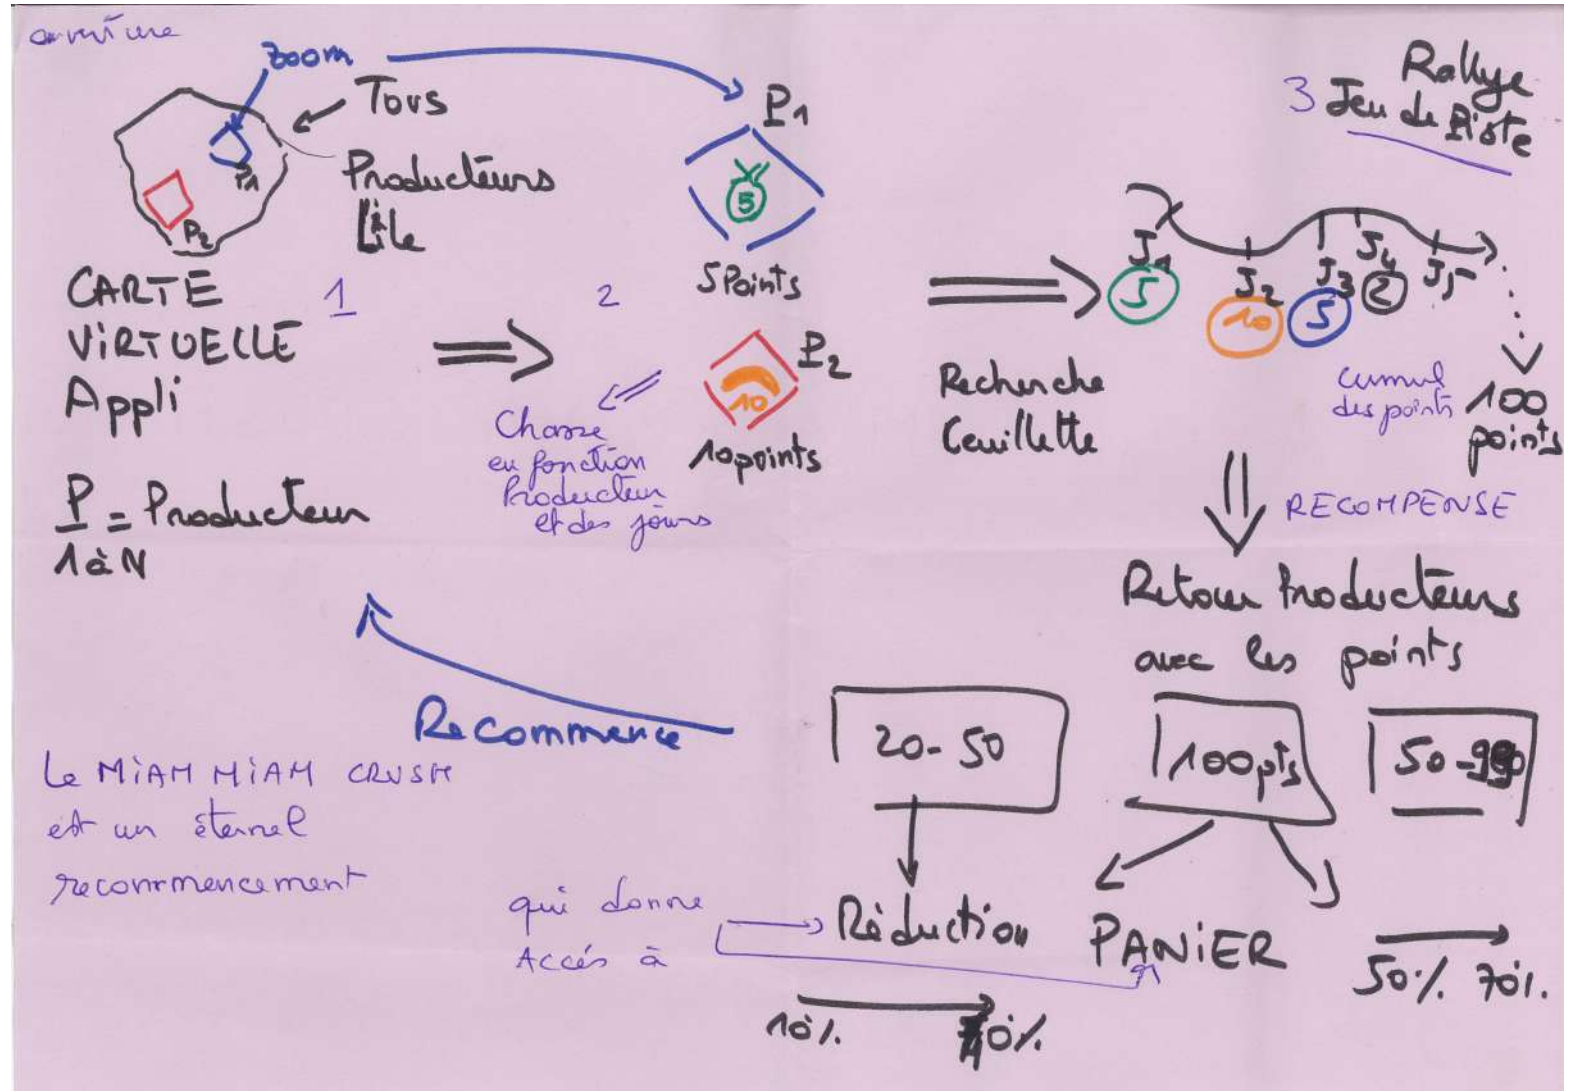 ouverture
Zoom
Tous
Producteurs
L'île
P1
P2
CARTE
VIRTUELLE
Appli
1
P = Producteur
1 à N
2
P1
5
5 Points
P2
10
10 points
Chasse
en fonction
Producteur
et des jours
3 Rallye
Jeu de Piste
J1
5
J2
10
J3
5
J4
2
J5
Recherche
Ceuillette
cumul
des points
100
points
RECOMPENSE
Retour Producteurs
avec les points
20-50
100pts
50-
Recommence
Le MiAM MiAM CRUSH
est un éternel
recommencement
qui donne
Accés à
Réduction
PANiER
10%
50% 70%